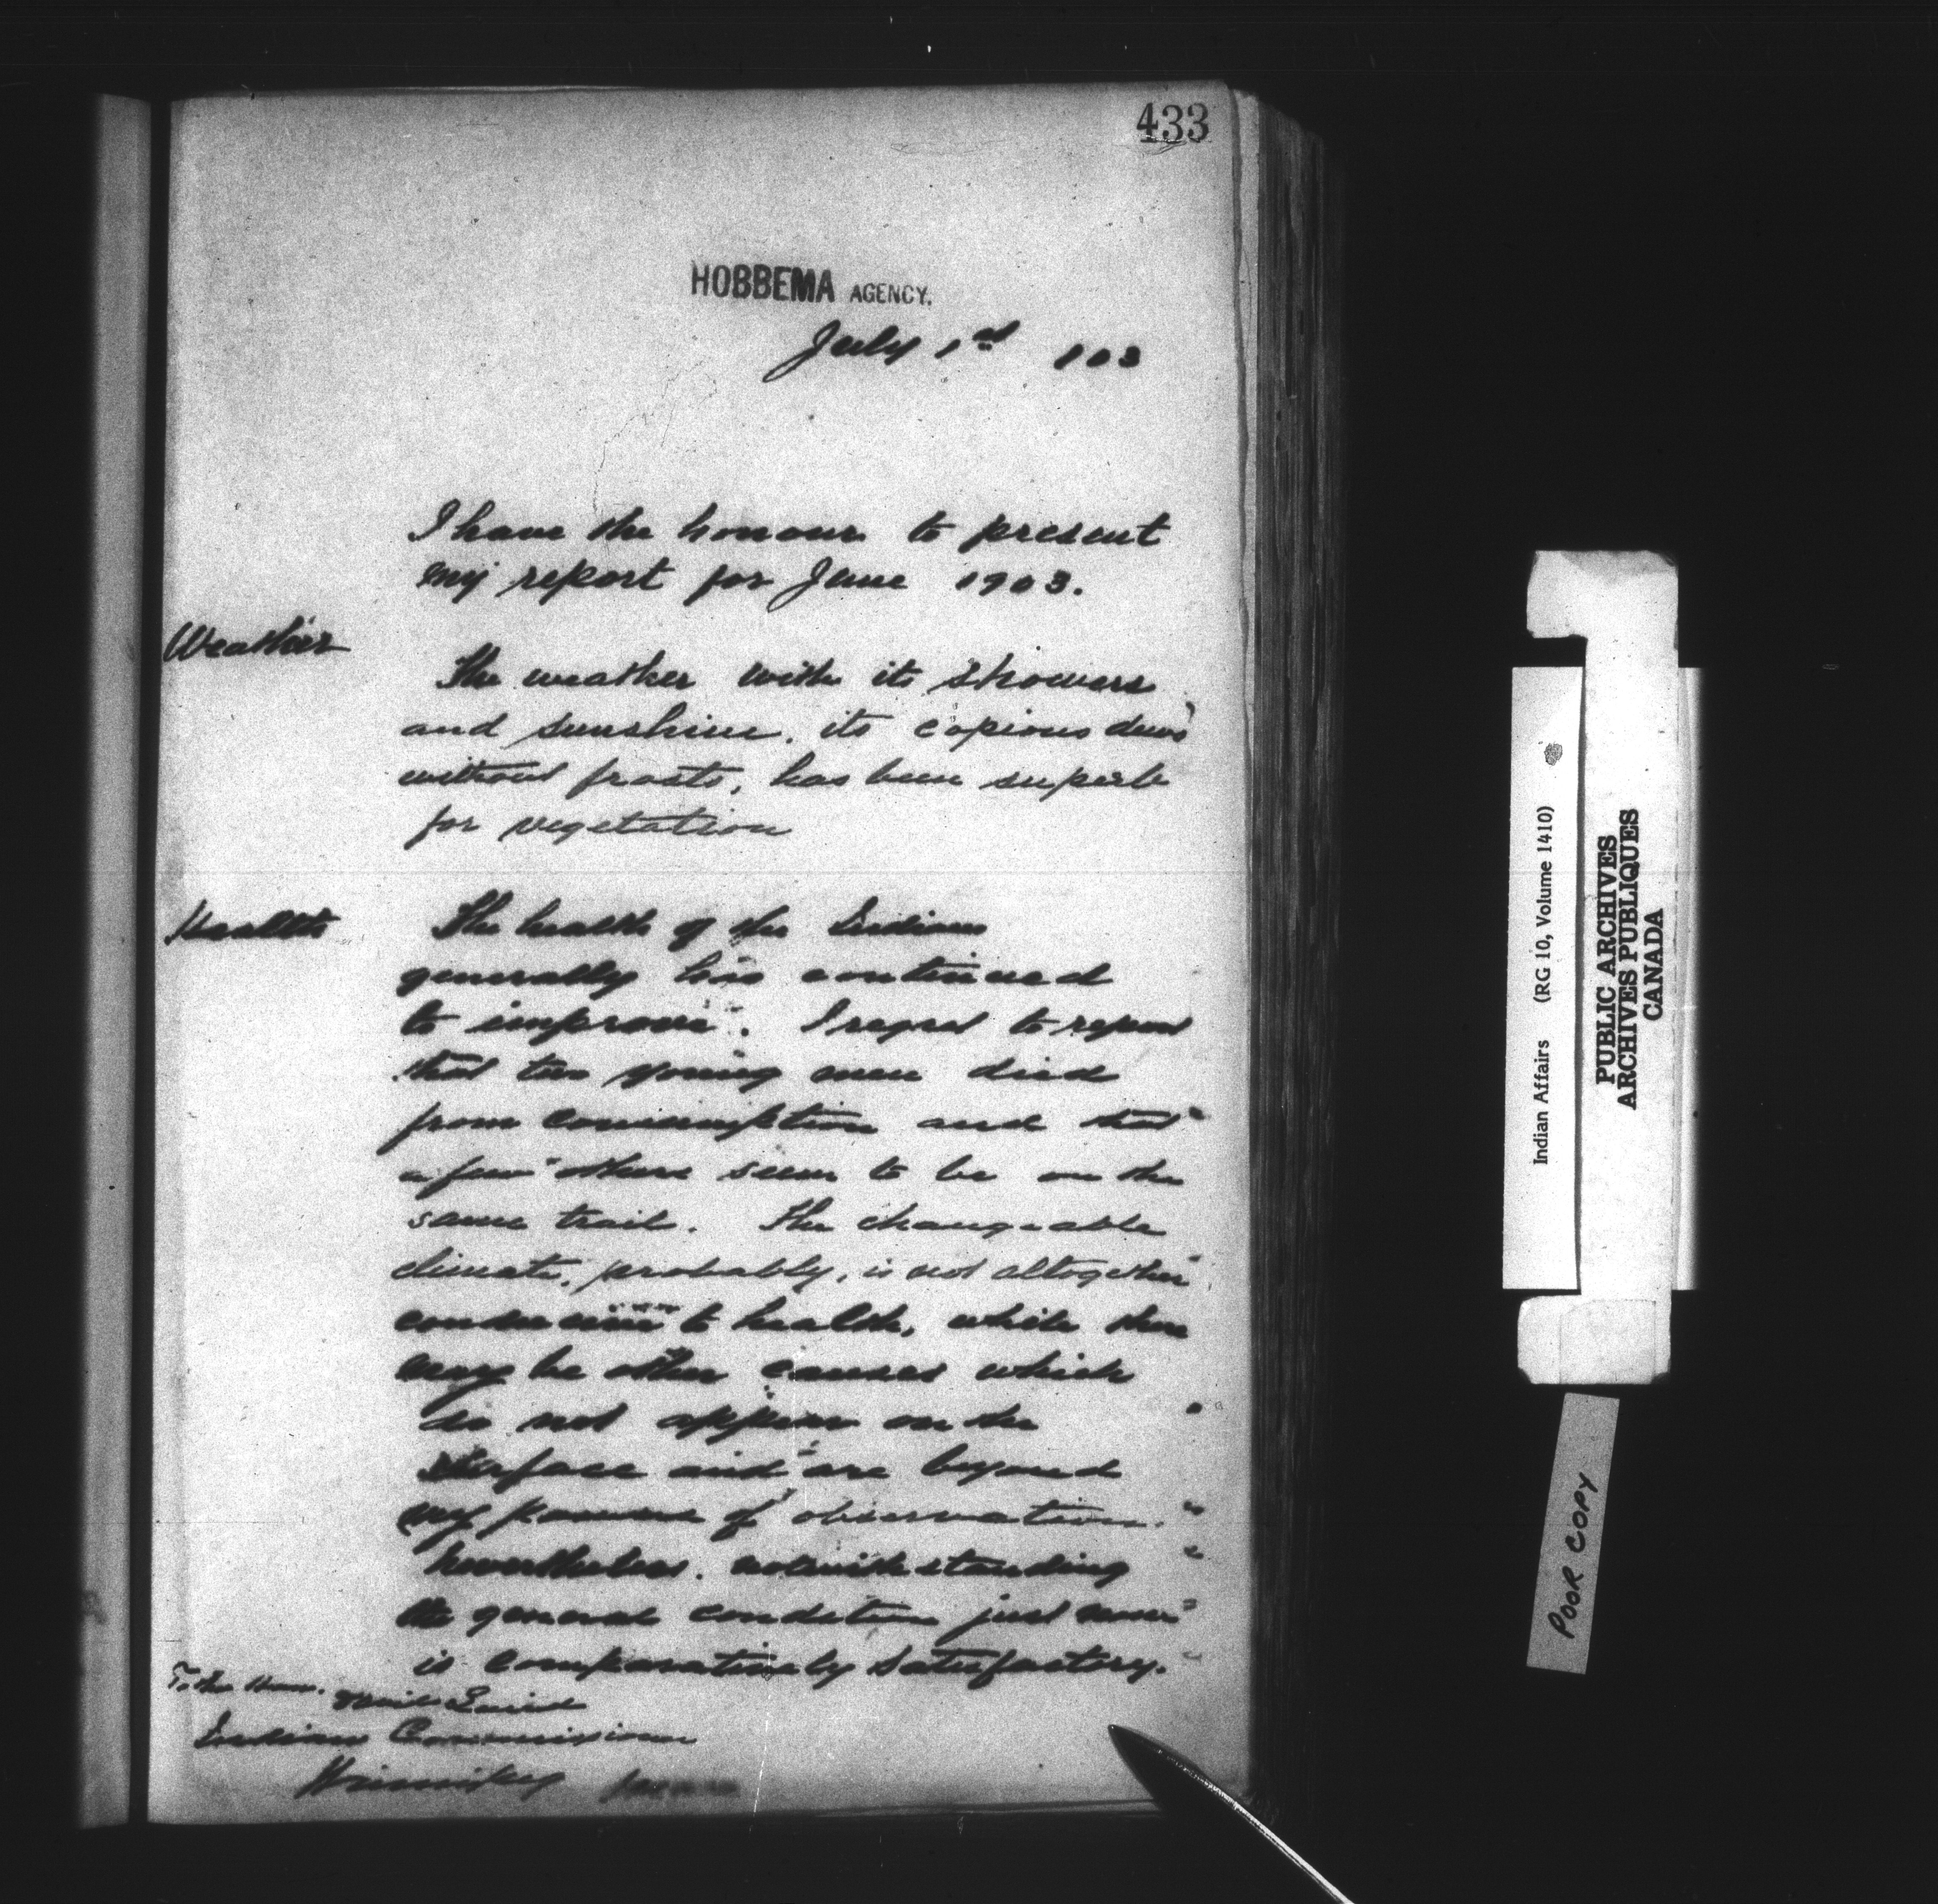 433
HOBBEMA AGENCY.
July 1st 103
I have the honour to present
my report for June 1903.
Weather
The weather with its showers
and sunshine, its copious dews
without frosts, has been superb
for vegetation
Health
The health of the Indians
generally has continued
to improve. I regret to report
that two young men died
from consumption and that
a few others seem to be on the
same trail. The changeable
climate, probably, is not altogether
conducive to health, while there
may be other causes which
do not appear on the
surface and are beyond
my powers of observation.
Nevertheless, notwithstanding
the general condition just now
is comparatively satisfactory.
To the Hon. David Laird
Indian Commissioner
Winnipeg
Indian Affairs (RG 10, Volume 1410)
PUBLIC ARCHIVES
ARCHIVES PUBLIQUES
CANADA
POOR COPY